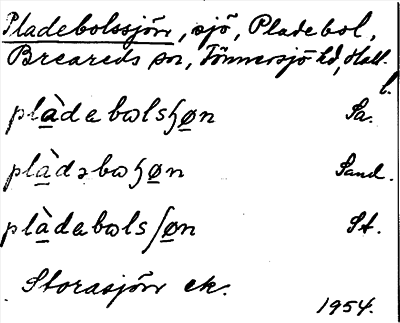 Pladebolssjön, sjö, Pladebol,
Breareds sn, Tönnersjö hd, Hall.
l.
plàdabωlsɧøn Sa.
plàdəbωɧøn Sand.
plàdabωlsʃøn St.
Storasjön ek.
1954.